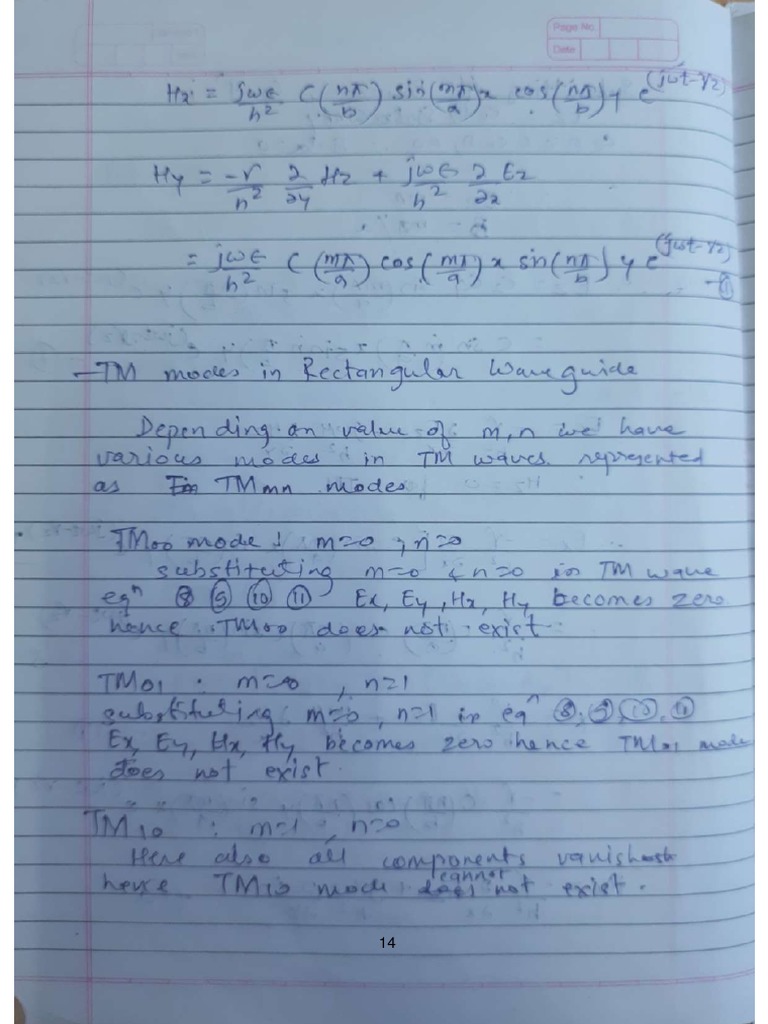 Page No.
Date
Hx = jωϵ/h² C(nπ/b) sin(mπ/a)x cos(nπ/b)y e^(jωt-γz)
Hy = -γ/h² ∂/∂y Hz + jωϵ/h² ∂/∂x Ez
= jωϵ/h² C(mπ/a) cos(mπ/a)x sin(nπ/b)y e^(jωt-γz) -⑪
- TM modes in Rectangular Waveguide
Depending on value of m,n we have
various modes in TM waves represented
as TMmn modes
TM00 mode : m=0 , n=0
substituting m=0 & n=0 in TM wave
eqn ⑧ ⑨ ⑩ ⑪ Ex, Ey, Hx, Hy becomes zero
hence TM00 does not exist
TM01 : m=0 , n=1
substituting m=0, n=1 in eqn ⑧, ⑨, ⑩, ⑪
Ex, Ey, Hx, Hy becomes zero hence TM01 mode
does not exist
TM10 : m=1 , n=0
Here also all components vanish
hence TM10 mode cannot does not exist.
14